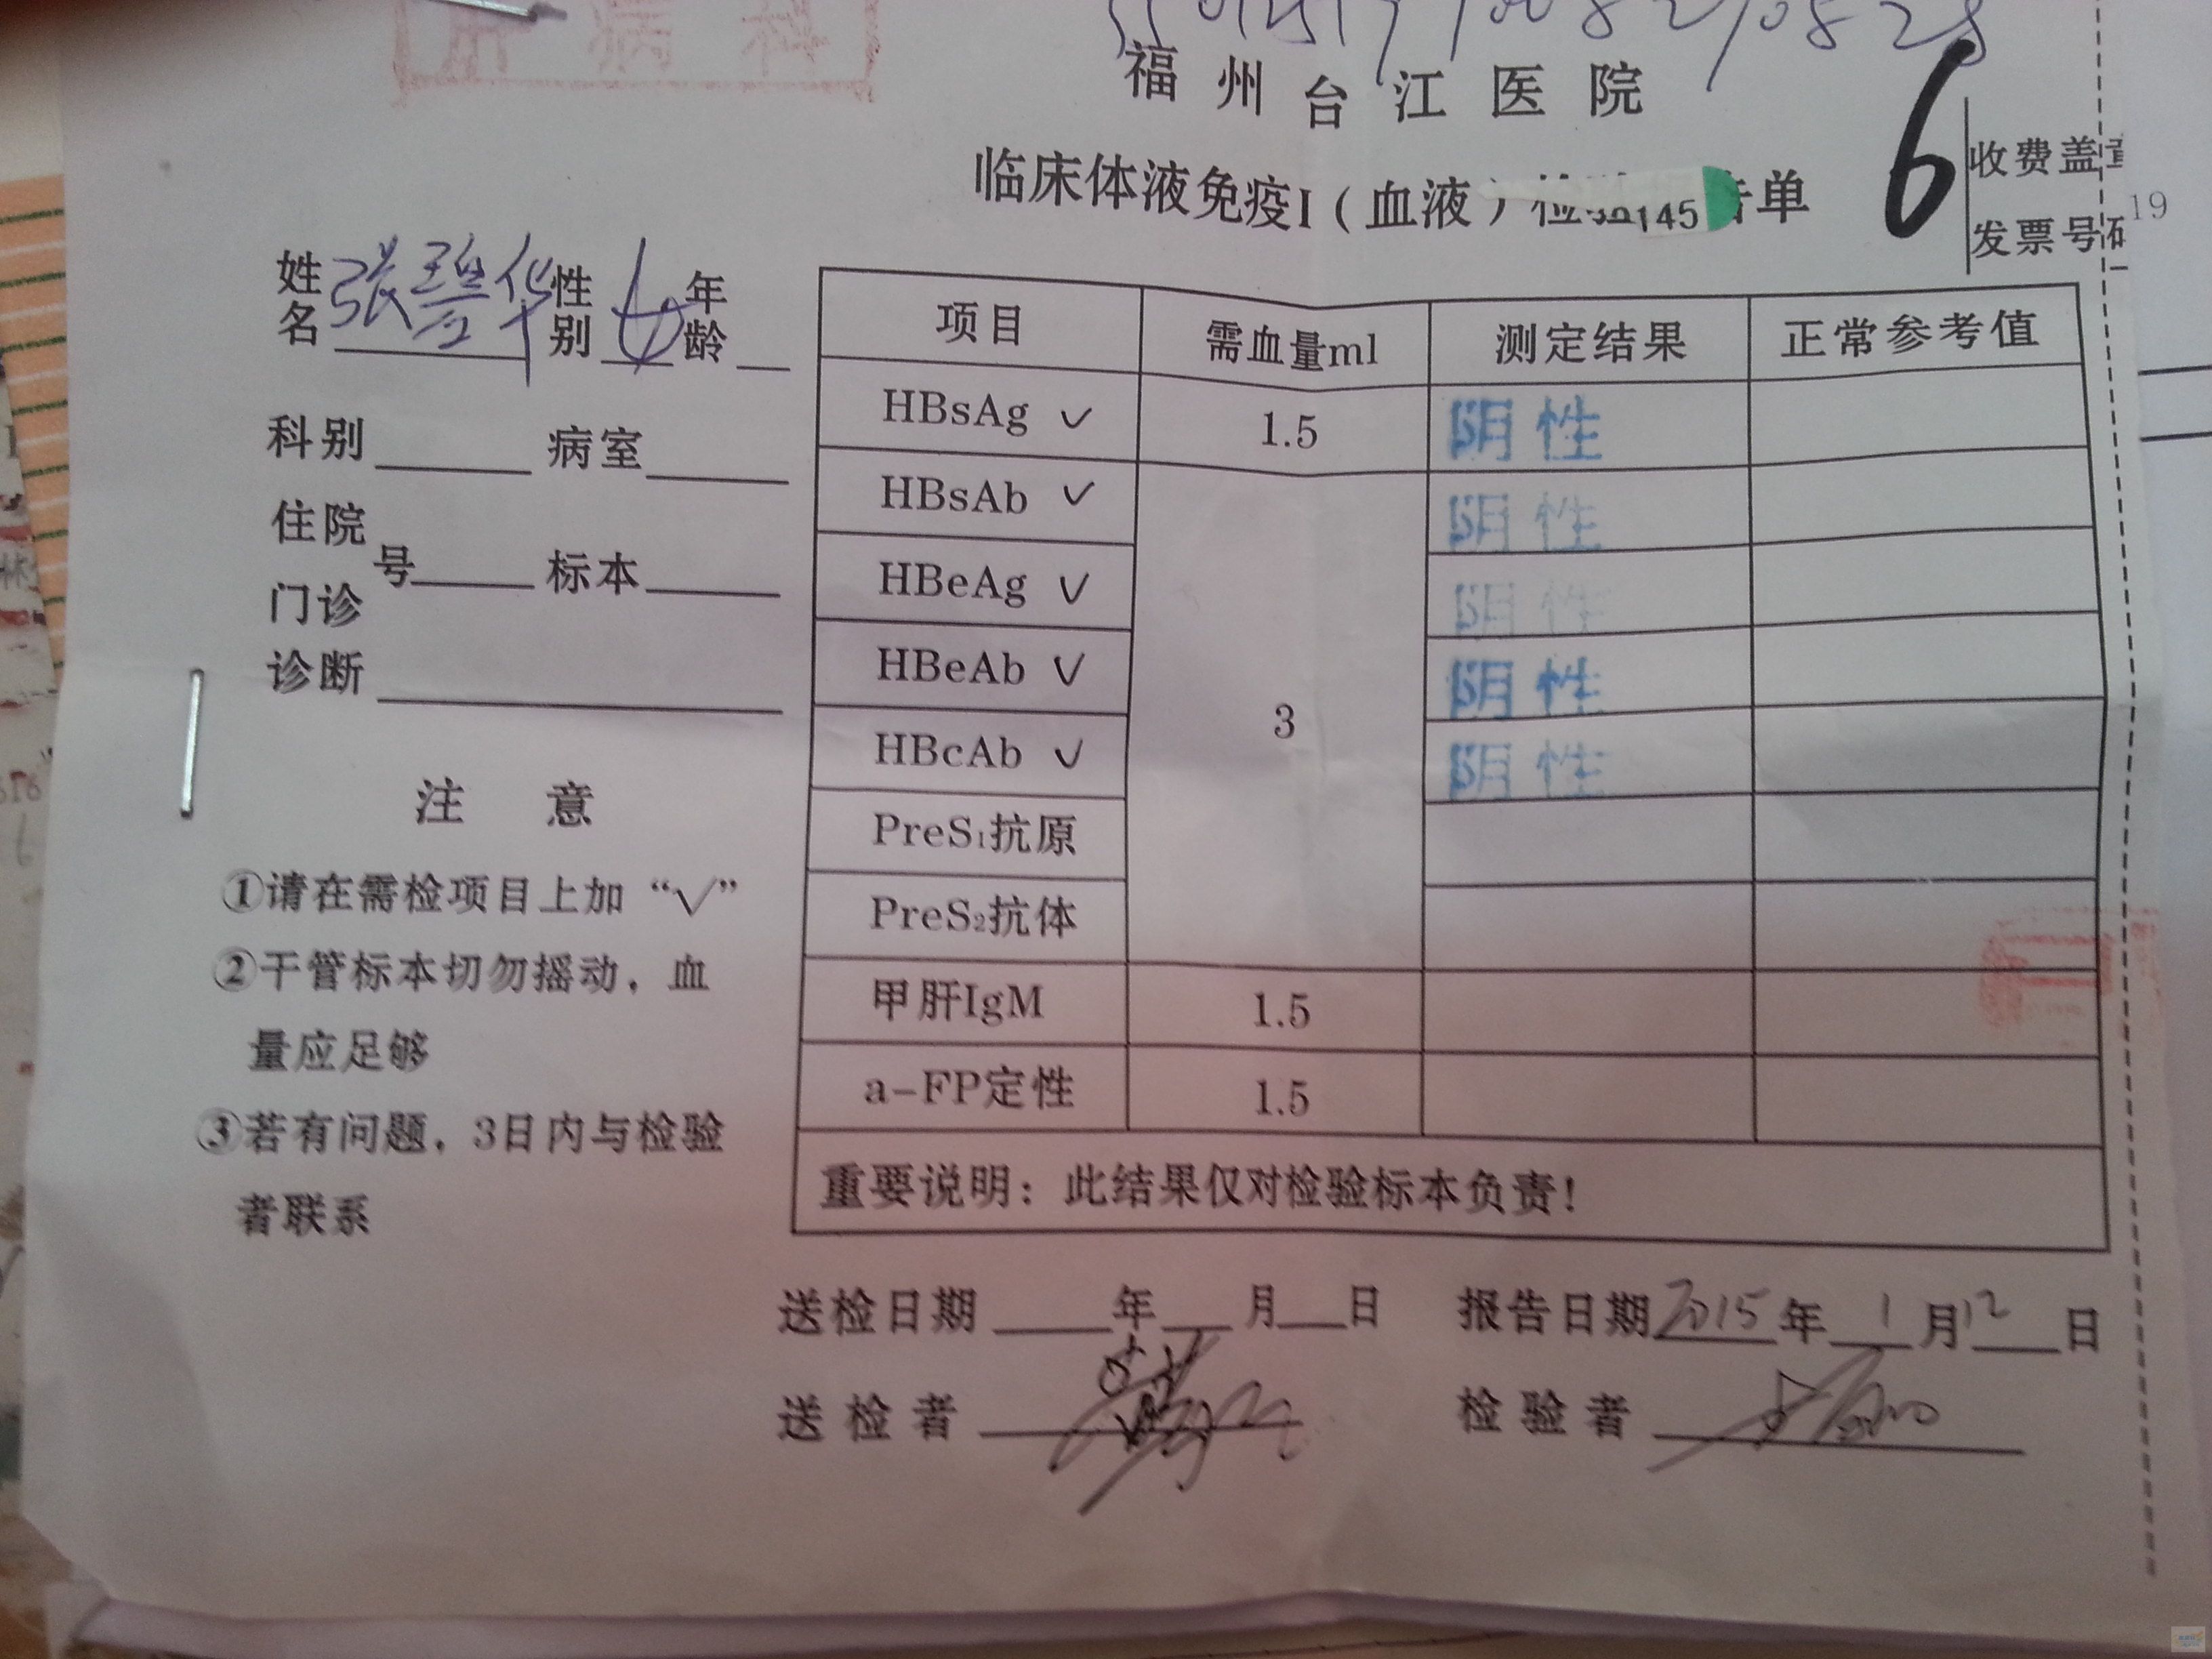 肝病科
福州台江医院
临床体液免疫I（血液）检 告单
145
6
收费盖章
发票号码
19
姓名 张碧华 性别 女 年龄
科别 病室
住院
门诊 号 标本
诊断
注意
①请在需检项目上加“√”
②干管标本切勿摇动，血
量应足够
③若有问题，3日内与检验
者联系
项目 需血量ml 测定结果 正常参考值
HBsAg ✓ 1.5 阴性
HBsAb ✓ 阴性
HBeAg ✓ 阴性
HBeAb ✓ 阴性
3
HBcAb ✓ 阴性
PreS₁抗原
PreS₂抗体
甲肝IgM 1.5
a-FP定性 1.5
重要说明：此结果仅对检验标本负责！
送检日期 年 月 日 报告日期 2015 年 1 月 12 日
送检者 检验者